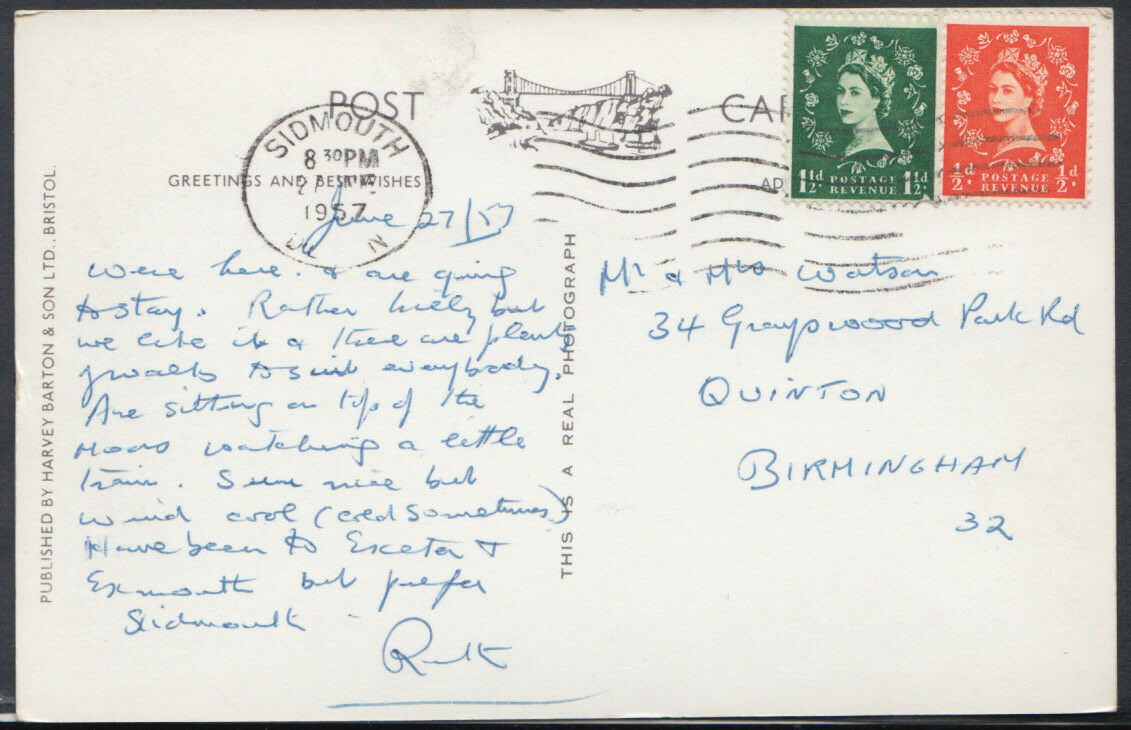 POST CAR
GREETINGS AND BEST WISHES
AD
SIDMOUTH
8 30PM
1957
1½d POSTAGE REVENUE 1½d
½d POSTAGE REVENUE ½d
PUBLISHED BY HARVEY BARTON & SON LTD., BRISTOL.
THIS IS A REAL PHOTOGRAPH
June 27/57
Were here. & are going
to stay. Rather hilly but
we like it & there are plenty
of walks to suit everybody.
Are sitting on top of the
moors watching a little
train. Sun nice but
wind cool (cold sometimes)
Have been to Exeter &
Exmouth but prefer
Sidmouth -
Ruth
Mr & Mrs Watson
34 Grayswood Park Rd
QUINTON
BIRMINGHAM
32